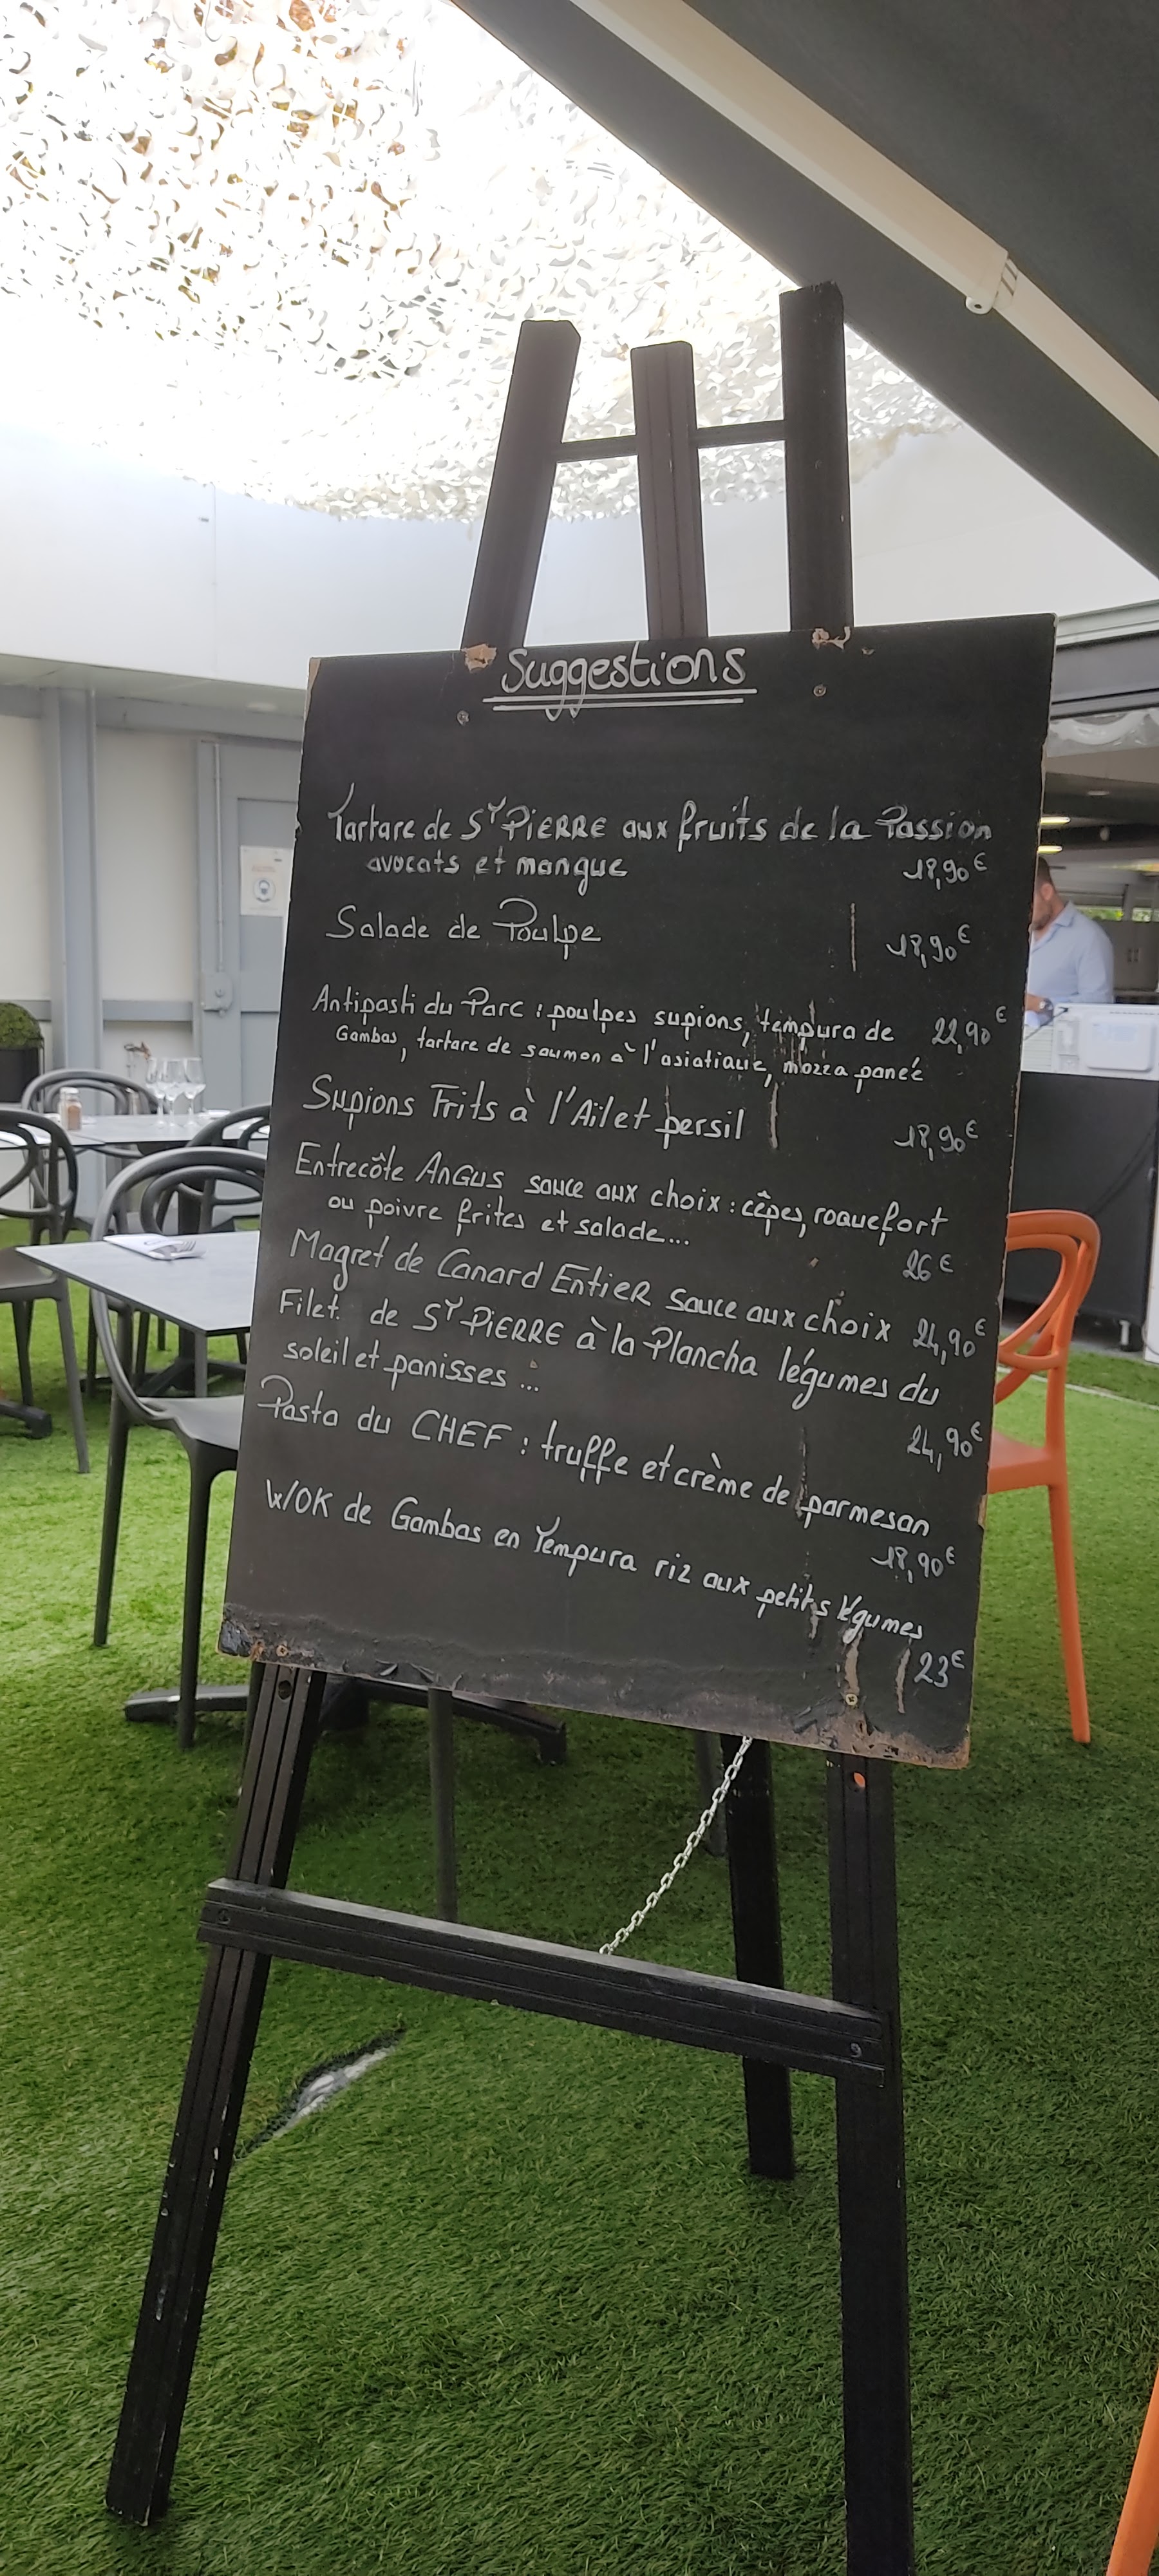 Suggestions
Tartare de St PIERRE aux fruits de la Passion
avocats et mangue 18,90€
Salade de Poulpe 18,90€
Antipasti du Parc : poulpes supions, tempura de 22,90€
Gambas, tartare de saumon à l'asiatique, mozza panée
Supions Frits à l'Ail et persil 18,90€
Entrecôte ANGUS sauce aux choix : cêpes, roquefort
ou poivre frites et salade... 26€
Magret de Canard EntiER sauce aux choix 24,90€
Filet de St PIERRE à la Plancha légumes du
soleil et panisses ... 24,90€
Pasta du CHEF : truffe et crème de parmesan
18,90€
WOK de Gambas en Tempura riz aux petits légumes
23€